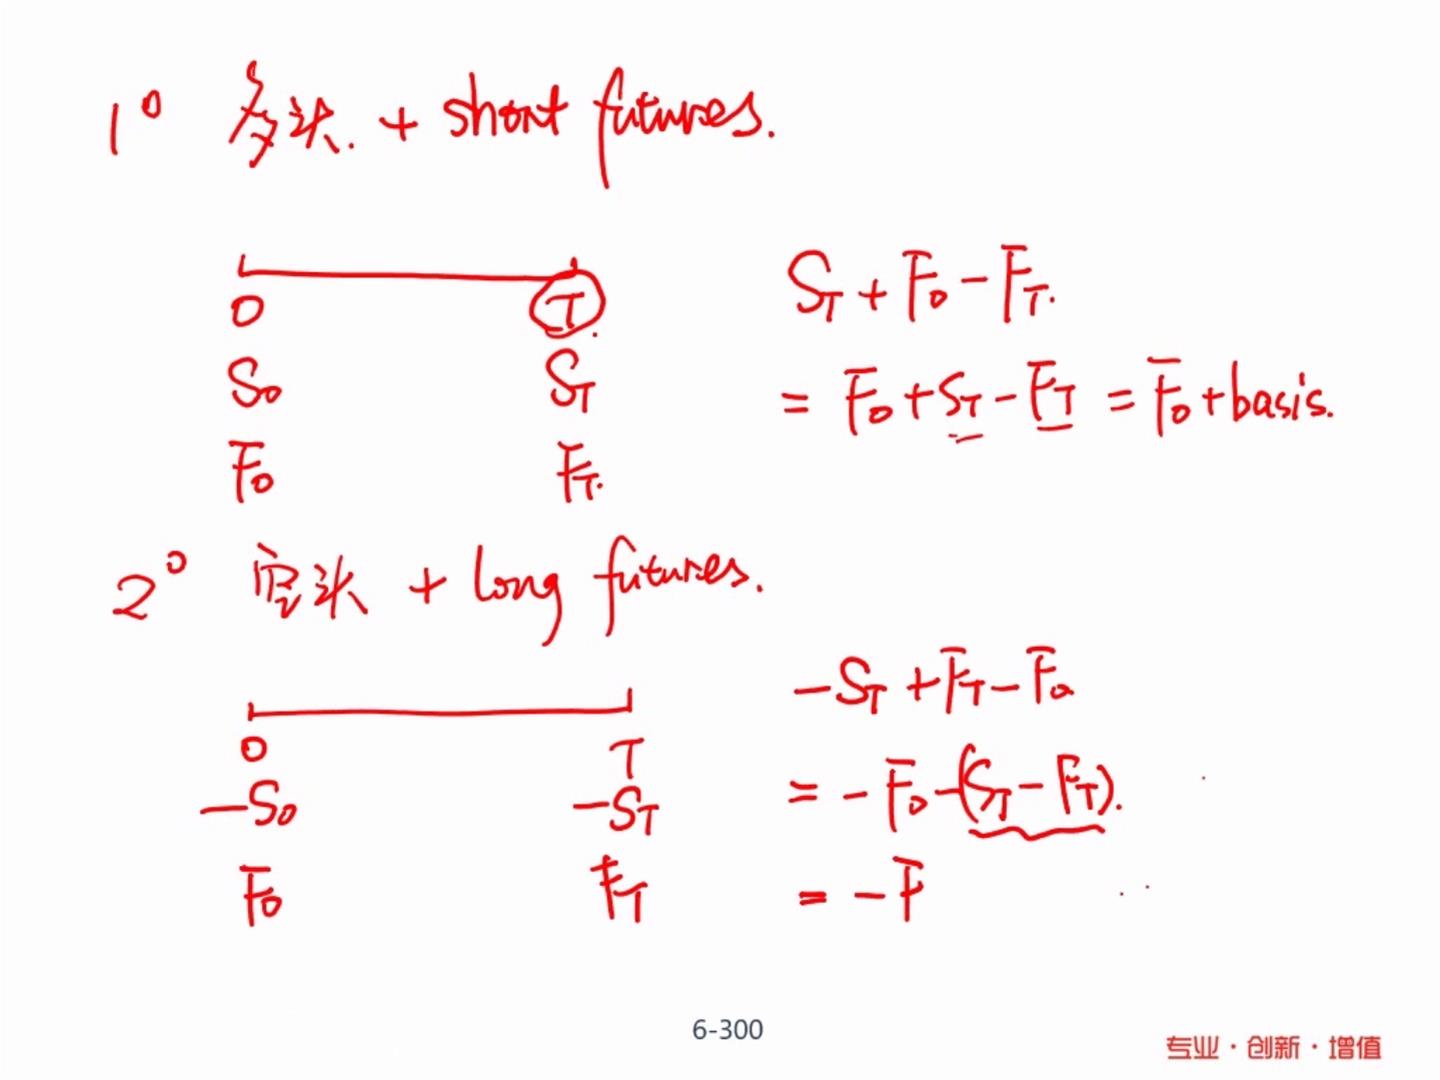 1° 多头. + short futures.
0 T
S₀ S_T
F₀ F_T.
S_T + F₀ - F_T.
= F₀ + S_T - F_T = F₀ + basis.
2° 空头 + long futures.
0 T
-S₀ -S_T
F₀ F_T
-S_T + F_T - F₀
= -F₀ - (S_T - F_T).
= -F
6-300
专业·创新·增值